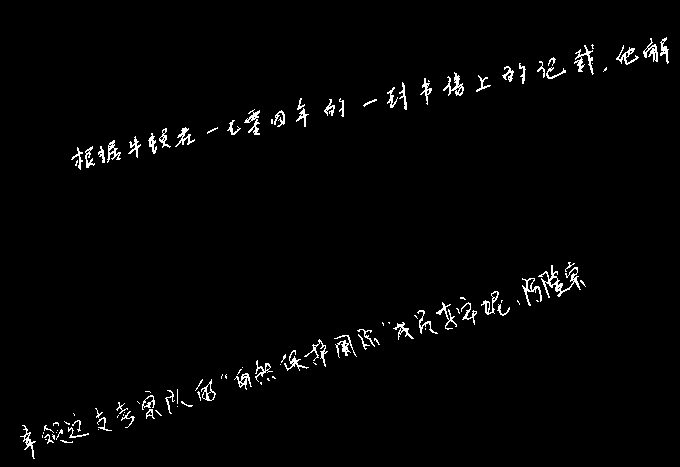 根据牛顿在一七零四年的一封书信上的记载,他解
率领这支考察队的“自然保护国际”成员李安妮、阿隆索